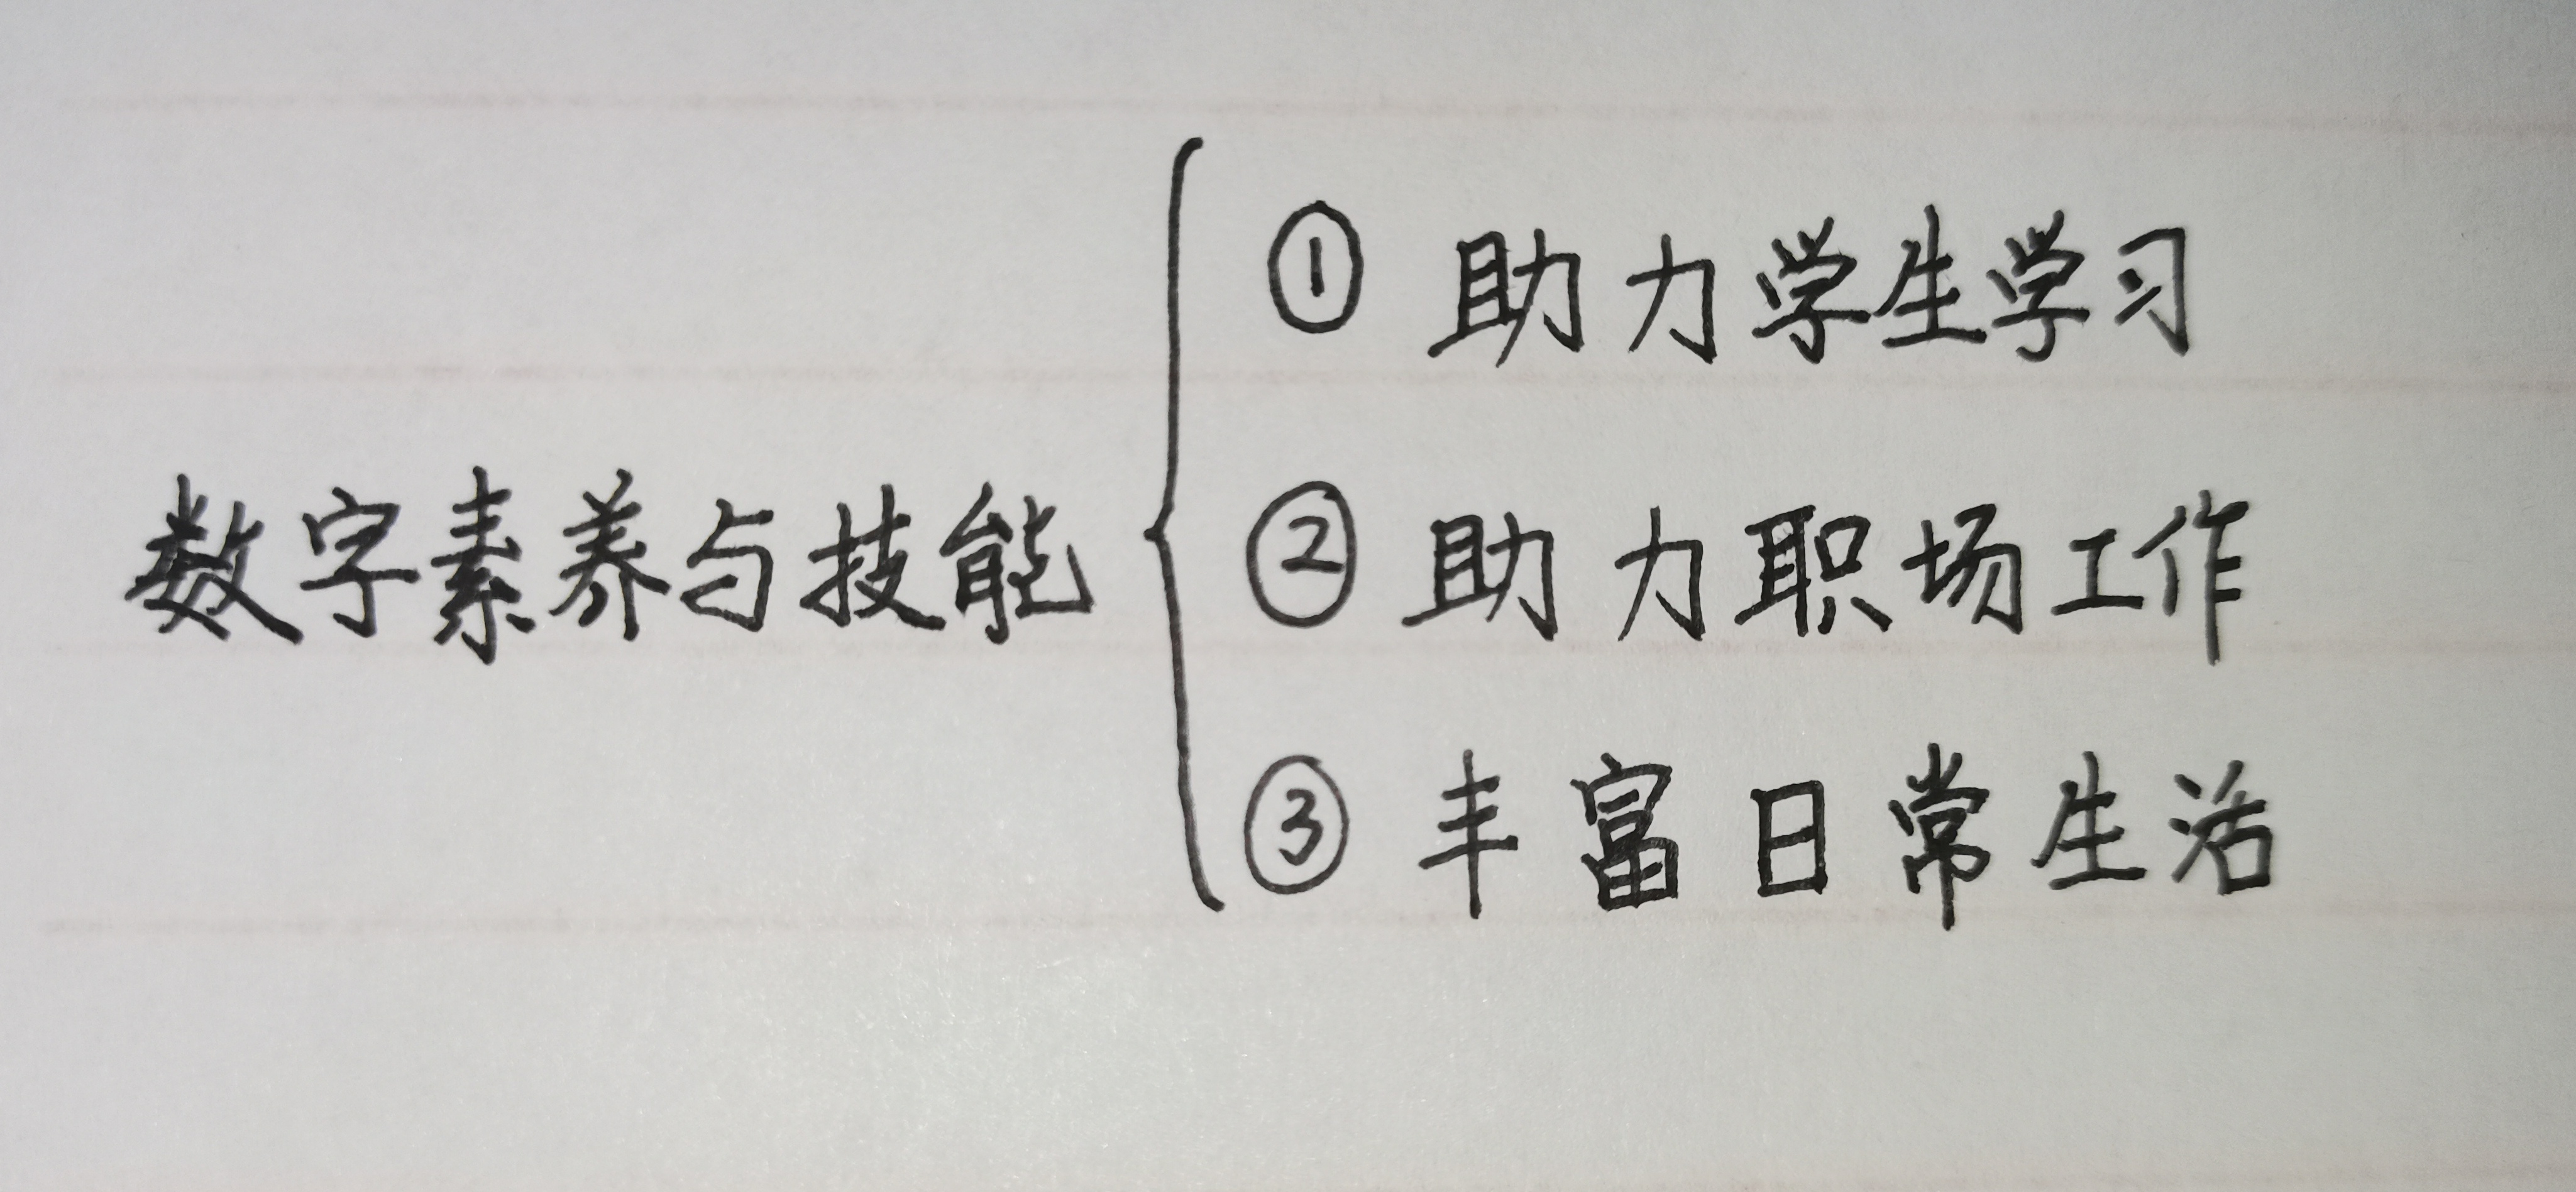 数字素养与技能
① 助力学生学习
② 助力职场工作
③ 丰富日常生活